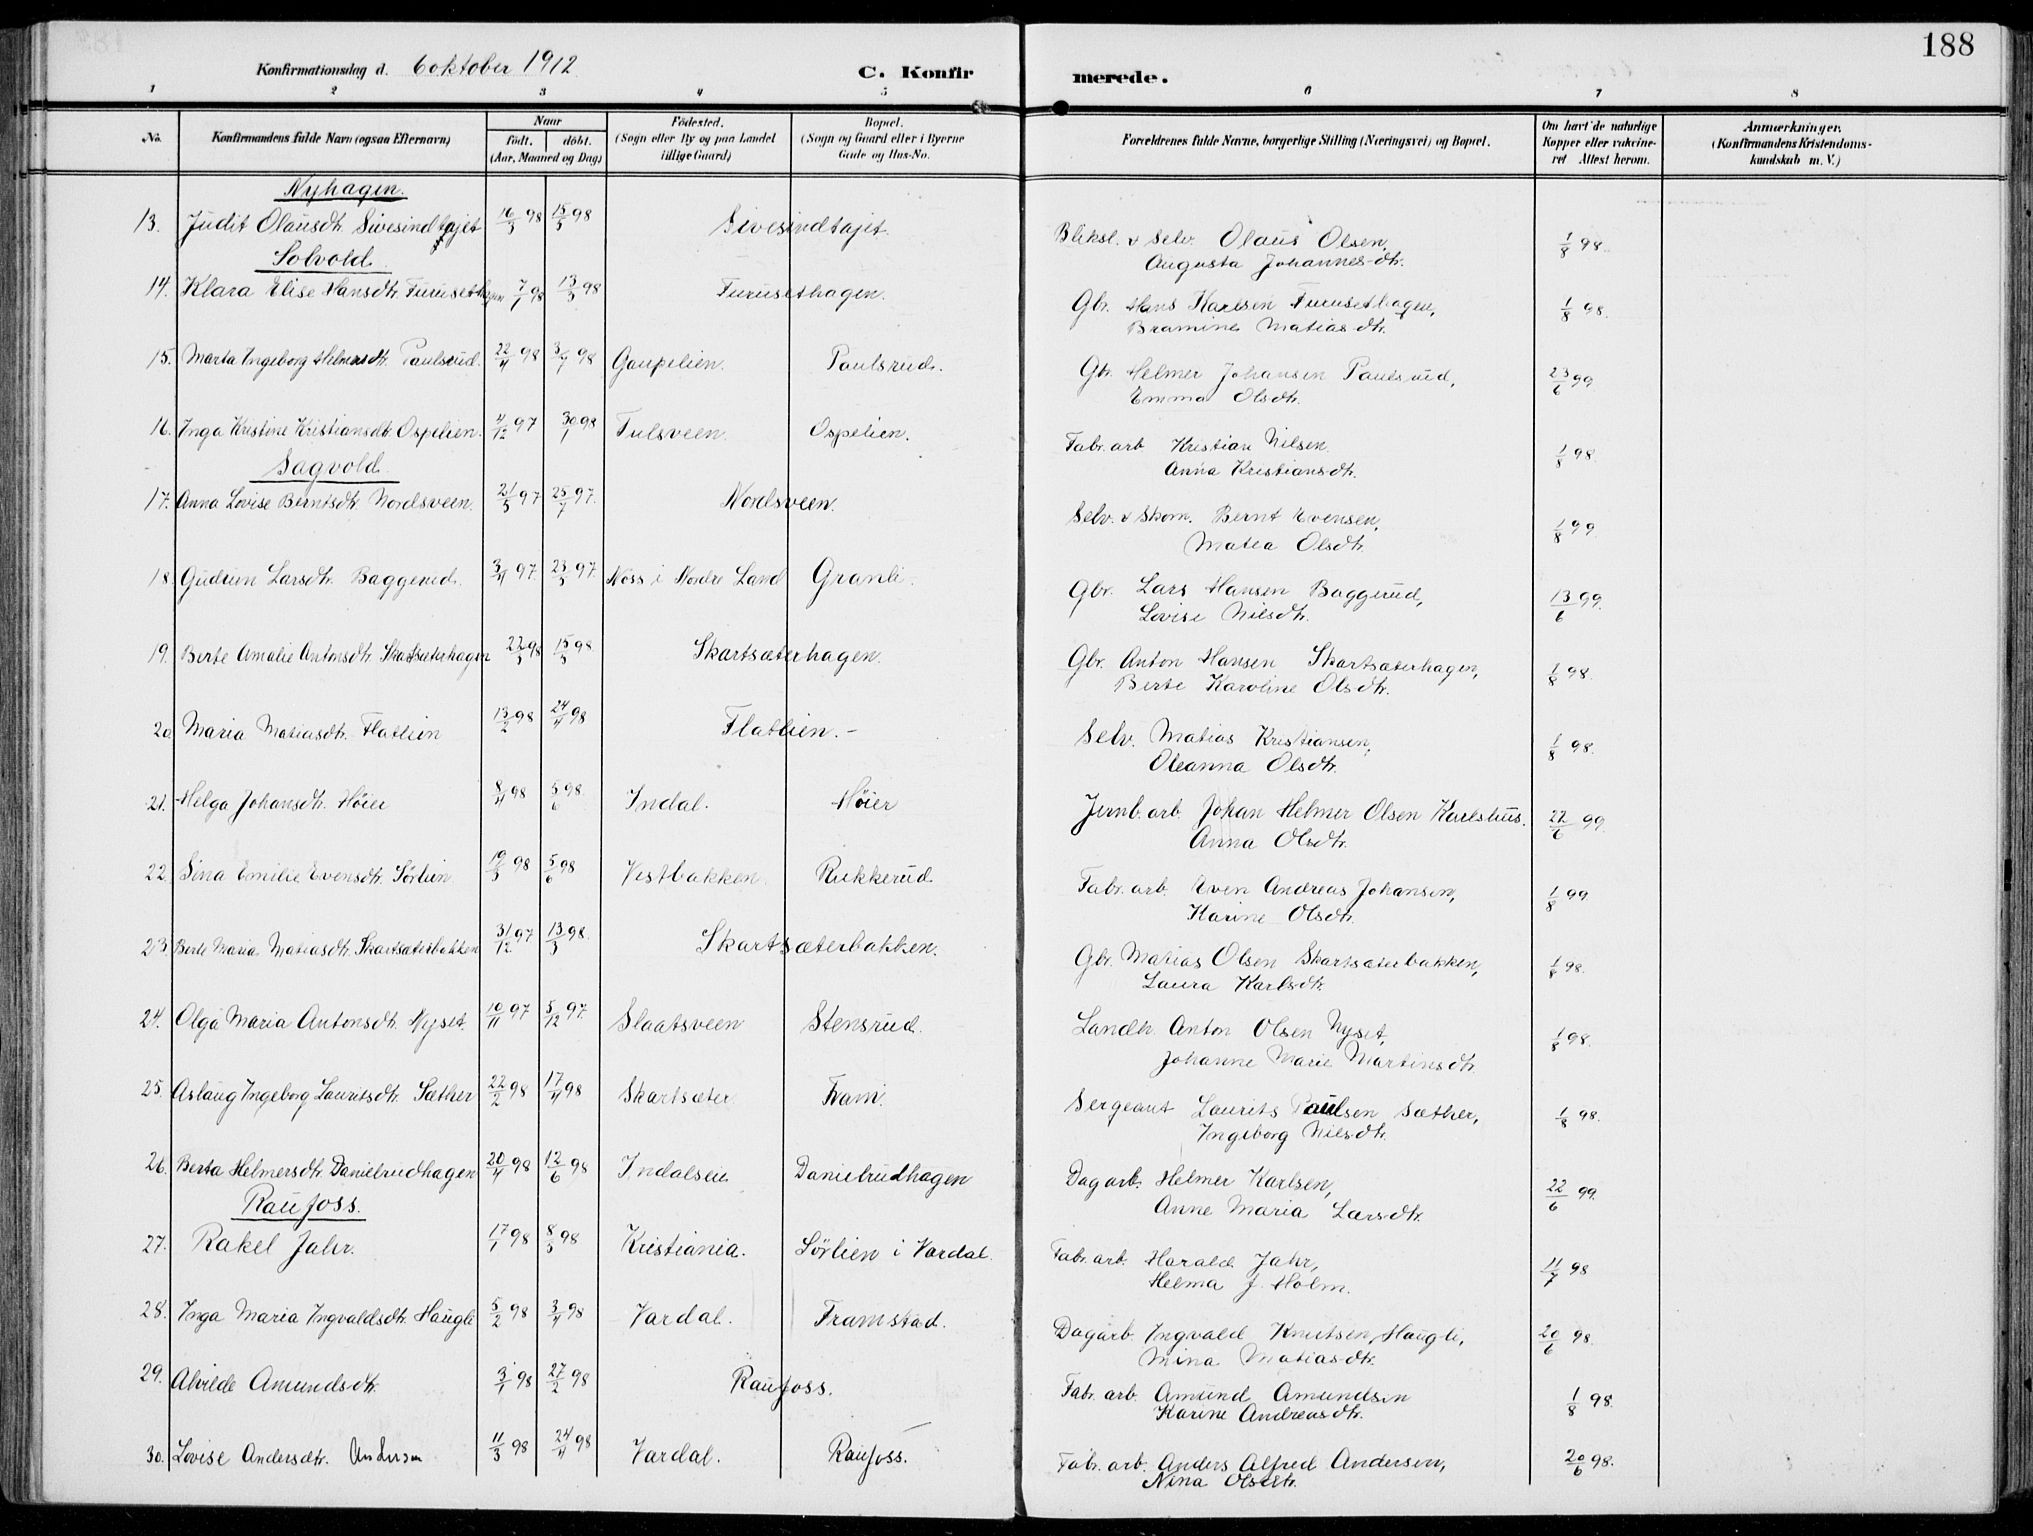 188
Konfirmationsdag d. 6 oktober 1912
C. Konfirmerede.
1 2 3 4 5 6 7 8
No. Konfirmandens fulde Navn (ogsaa Efternavn) Naar født. døbt. (Aar, Maaned og Dag) Fødested. (Sogn eller By og paa Landet tillige Gaard) Bopæl. (Sogn og Gaard eller i Byerne Gade og Hus-No. Forældrenes fulde Navne, borgerlige Stilling (Næringsvei) og Bopæl. Om havt de naturlige Kopper eller vakcineret Attest herom. Anmærkninger. (Konfirmandens Kristendomskundskab m. V.)
Nyhagen.
13. Judit Olausdtr. Sivesindtajet 16/3 98 15/5 98 Sivesindtajet. Bliksl. & Selv. Olaus Olsen, 1/8 98.
Augusta Johannes-dtr.
Solvold
14. Klara Elise Hansdtr. Furusethagen 7/1 98 13/3 98 Furusethagen. Gbr. Hans Karlsen Furusethagen, 1/8 98.
Bramine Matias-dtr.
15. Marta Ingeborg Helmersdtr. Paulsrud. 22/4 98 3/7 98 Gaupelien. Paulsrud. Gbr. Helmer Johansen Paulsrud, 23/6 99
Emma Olsdtr.
16. Inga Kristine Kristiansdtr. Ospelien. 4/12 97 30/1 98 Fulsveen. Ospelien. Fabr. arb. Kristian Nilsen 1/8 98.
Anna Kristiansdtr.
Sagvold.
17. Anna Lovise Berntsdtr. Nordsveen. 21/5 97 25/7 97. Nordsveen. Selv. & Skom. Bernt Evensen, 1/8 99.
Matea Olsdtr.
18. Gudrun Larsdtr. Baggerud. 3/4 97. 23/5 97. Noss i Nordre Land Granli. Gbr. Lars Hansen Baggerud, 13/6 99.
Lovise Nilsdtr.
19. Berte Amalie Antonsdtr. Skartsæterhagen 22/3 98 15/5 98 Skartsæterhagen. Gbr. Anton Hansen Skartsæterhagen, 1/8 98.
Berte Karoline Olsdtr.
20 Maria Matiasdtr. Flatlien 13/2 98 24/4 98 Flatlien. - Selv. Matias Kristiansen, 1/8 98.
Oleanna Olsdtr.
21. Helga Johansdtr. Höier 8/4 98 5/6 98. Indal. Höier Jernb. arb. Johan Helmer Olsen Karlshus. 22/6 99.
Anna Olsdtr.
22. Sina Emilie Evensdtr. Sörlien 19/3 98 5/6 98 Vestbakken. Rukkerud. Fabr. arb. Even Andreas Johansen, 1/8 99.
Karine Olsdtr.
23. Berte Maria Matiasdtr. Skartsæterbakken 31/12 97 13/3 98. Skartsæterbakken. Gbr. Matias Olsen Skartsæterbakken, 1/8 98.
Laura Karlsdtr.
24. Olga Maria Antonsdtr. Nyset. 10/11 97 5/12 97. Slaatsveen Stensrud. Landh. Anton Olsen Nyset, 1/8 98.
Johanne Marie Martinsdtr.
25. Aslaug Ingeborg Lauritsdtr. Sæther 22/2 98 17/4 98 Skartsæter Fram. Sergeant Laurits Paulsen Sæther, 1/8 98.
Ingeborg Nilsdtr.
26. Berta Helmersdtr. Danielrudhagen 20/4 98 12/6 98 Indalseie Danielrudhagen Dagarb. Helmer Karlsen, 22/6 99.
Anne Maria Larsdtr.
Raufoss.
27. Rakel Jahr. 17/1 98 8/5 98 Kristiania. Sörlien i Vardal. Fabr. arb. Harald Jahr, 11/7 98
Helma J. Holm.
28. Inga Maria Ingvaldsdtr. Haugli 5/2 98 3/4 98 Vardal. Framstad. Dagarb. Ingvald Knutsen Haugli, 20/6 98.
Mina Matiasdtr.
29. Alvilde Amundsdtr. 3/1 98 27/2 98 Raufoss. Fabr. arb. Amund Amundsen 1/8 98.
Karine Andreasdtr.
30. Lovise Andersdtr. Andersen 11/3 98 24/4 98 Vardal. Raufoss. Fabr. arb. Anders Alfred Andersen, 20/6 98.
Nina Olsdtr.